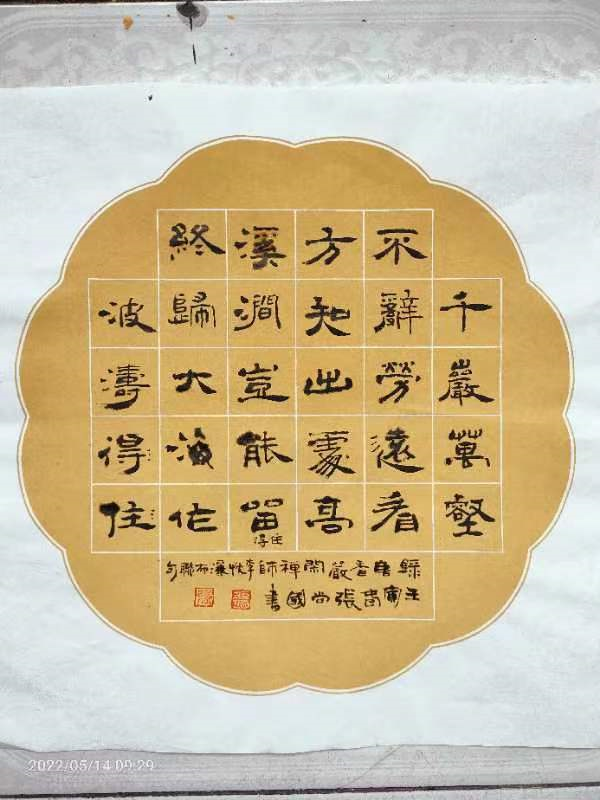 千巖萬壑
不辭勞遠看
方知出處高
溪澗豈能留
得住
終歸大海作
波濤得住
錄唐香嚴閑禪師李忱瀑布聯句
壬寅春張尚國書
2022/05/14 09:29